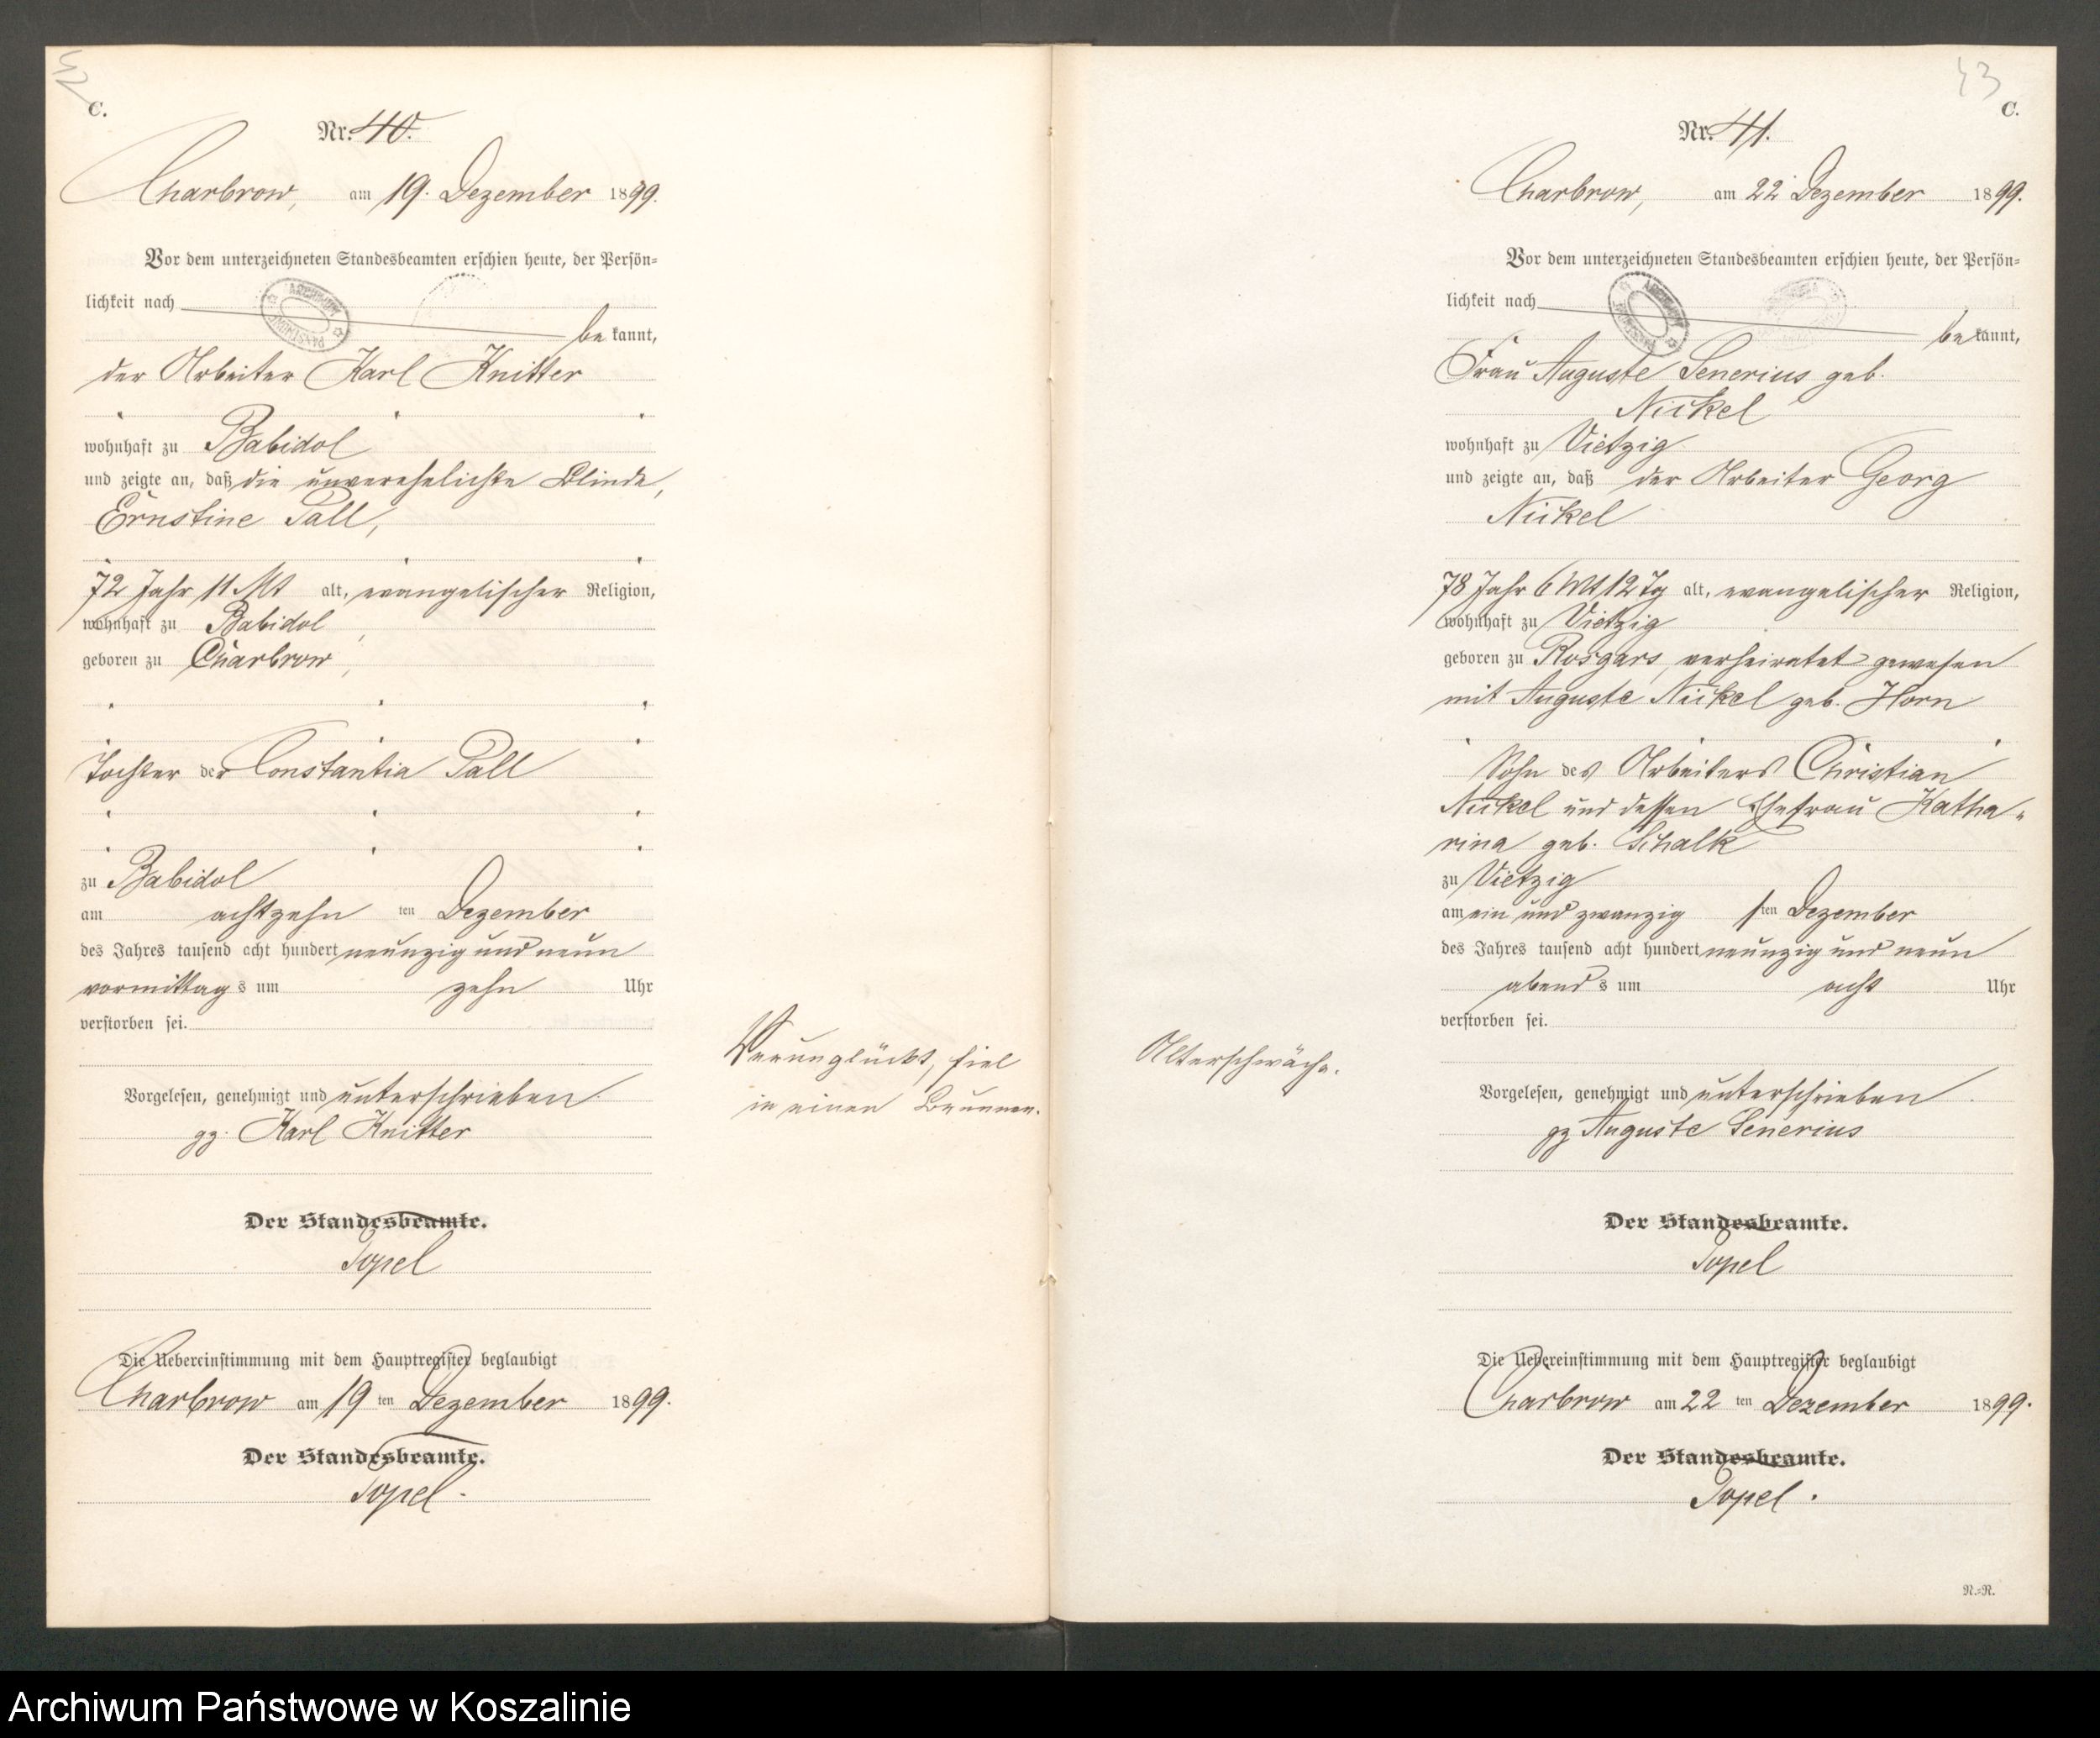 42
C.
Nr. 40.
Charbrow, am 19. Dezember 1899.
Vor dem unterzeichneten Standesbeamten erschien heute, der Persön-
lichkeit nach
be kannt,
der Arbeiter Karl Knitter
wohnhaft zu Babidol
und zeigte an, daß die unverehelichte Blinde,
Ernstine Pall,
72 Jahr 11 Mt alt, evangelischer Religion,
wohnhaft zu Babidol,
geboren zu Charbrow,
Tochter der Constantia Pall
zu Babidol
am achtzehn ten Dezember
des Jahres tausend acht hundert neunzig und neun
vormittag s um zehn Uhr
verstorben sei.
Verunglückt, fiel
in einen Brunnen.
Vorgelesen, genehmigt und unterschrieben.
gz. Karl Knitter
Der Standesbeamte.
Popel
Die Uebereinstimmung mit dem Hauptregister beglaubigt
Charbrow am 19 ten Dezember 1899.
Der Standesbeamte.
Popel.
43
C.
Nr. 41.
Charbrow, am 22 Dezember 1899.
Vor dem unterzeichneten Standesbeamten erschien heute, der Persön-
lichkeit nach
be kannt,
Frau Auguste Senerius geb.
Nickel
wohnhaft zu Vietzig
und zeigte an, daß der Arbeiter Georg
Nickel
78 Jahr 6 Mt 12 Tg alt, evangelischer Religion,
wohnhaft zu Vietzig
geboren zu Rosgars, verheiratet gewesen
mit Auguste Nickel geb. Horn
Sohn des Arbeiters Christian
Nickel und dessen Ehefrau Katha-
rina geb. Schalk
zu Vietzig
am ein und zwanzig sten Dezember
des Jahres tausend acht hundert neunzig und neun
abend s um acht Uhr
verstorben sei.
Alterschwäche.
Vorgelesen, genehmigt und unterschrieben.
gz Auguste Senerius
Der Standesbeamte.
Popel
Die Uebereinstimmung mit dem Hauptregister beglaubigt
Charbrow am 22 ten Dezember 1899.
Der Standesbeamte.
Popel.
N.=N.
Archiwum Państwowe w Koszalinie